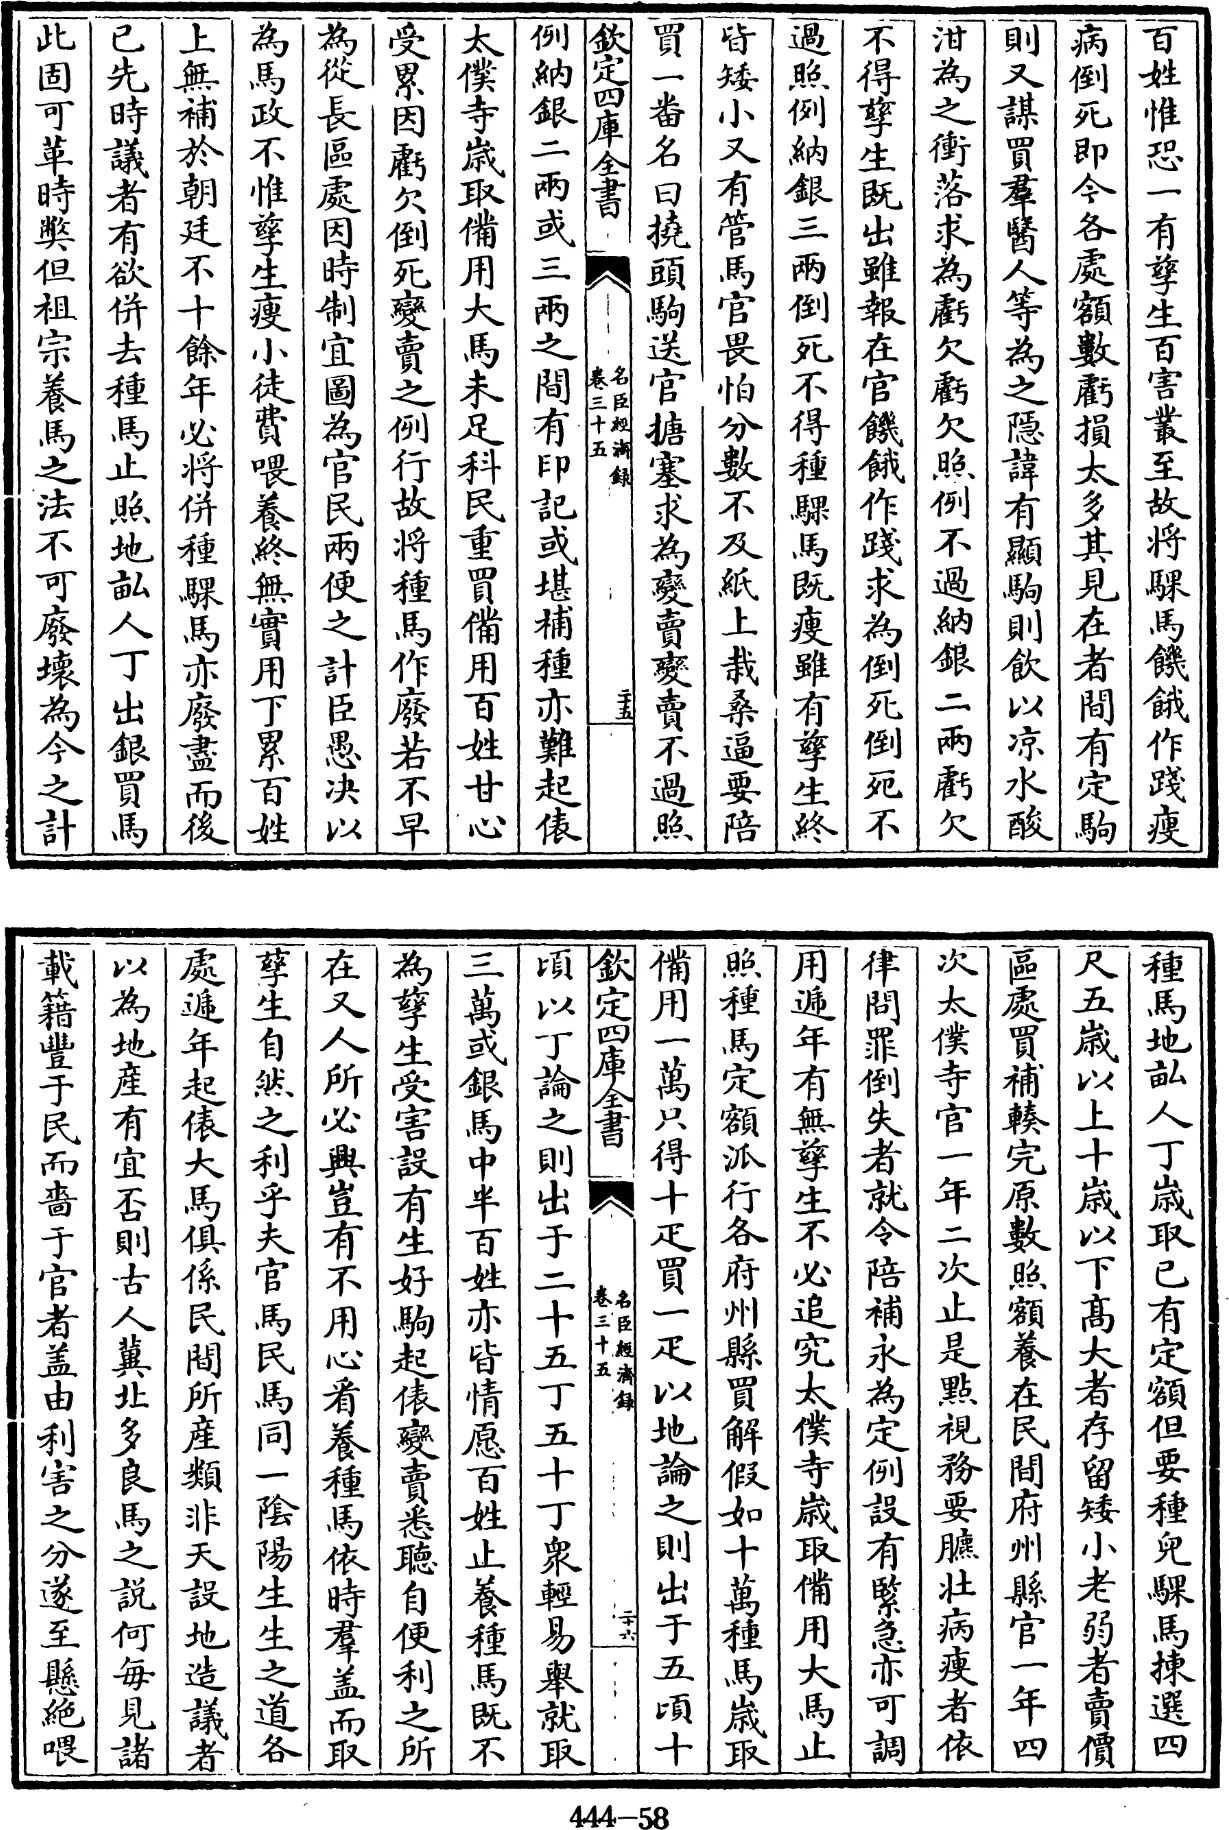 百姓惟恐一有孳生百害叢至故將騍馬饑餓作踐瘦
病倒死即今各處額數虧損太多其見在者間有定駒
則又謀買羣醫人等為之隠諱有顯駒則飲以凉水酸
泔為之衝落求為虧欠虧欠照例不過納銀二兩虧欠
不得孳生既出雖報在官饑餓作踐求為倒死倒死不
過照例納銀三兩倒死不得種騍馬既瘦雖有孳生終
皆矮小又有管馬官畏怕分數不及紙上栽桑逼要陪
買一番名曰撓頭駒送官搪塞求為變賣變賣不過照
欽定四庫全書
名臣經濟録
卷三十五
二十五
例納銀二兩或三兩之間有印記或堪補種亦難起俵
太僕寺歲取備用大馬未足科民重買備用百姓甘心
受累因虧欠倒死變賣之例行故將種馬作廢若不早
為從長區處因時制宜圖為官民兩便之計臣愚决以
為馬政不惟孳生瘦小徒費喂養終無實用下累百姓
上無補於朝廷不十餘年必將併種騍馬亦廢盡而後
已先時議者有欲併去種馬止照地畝人丁出銀買馬
此固可革時弊但祖宗養馬之法不可廢壊為今之計
種馬地畝人丁歲取已有定額但要種兒騍馬揀選四
尺五歲以上十歲以下髙大者存留矮小老弱者賣價
區處買補輳完原數照額養在民間府州縣官一年四
次太僕寺官一年二次止是點視務要膘壯病瘦者依
律問罪倒失者就令陪補永為定例設有緊急亦可調
用遞年有無孳生不必追究太僕寺歲取備用大馬止
照種馬定額派行各府州縣買解假如十萬種馬歲取
備用一萬只得十疋買一疋以地論之則出于五頃十
欽定四庫全書
名臣經濟録
卷三十五
二十六
頃以丁論之則出于二十五丁五十丁衆輕易舉就取
三萬或銀馬中半百姓亦皆情愿百姓止養種馬既不
為孳生受害設有生好駒起俵變賣悉聽自便利之所
在又人所必興豈有不用心看養種馬依時羣盖而取
孳生自然之利乎夫官馬民馬同一陰陽生生之道各
處遞年起俵大馬俱係民間所産類非天設地造議者
以為地産有宜否則古人冀北多良馬之説何每見諸
載籍豐于民而嗇于官者盖由利害之分遂至懸絶喂
444-58